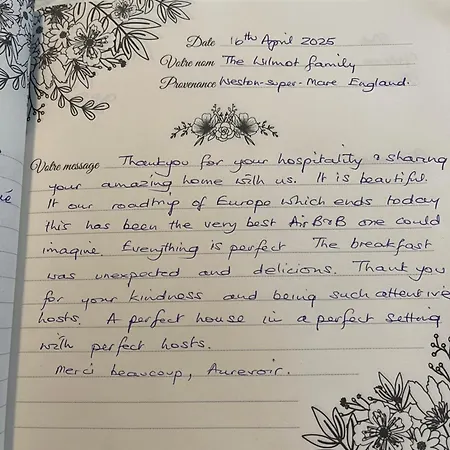 Date 16th April 2025
Votre nom The Wilmot family
Provenance Weston-super-Mare England.
Votre message Thankyou for your hospitality & sharing
your amazing home with us. It is beautiful.
It our roadtrip of Europe which ends today
this has been the very best AirB&B one could
imagine. Everything is perfect The breakfast
was unexpected and delicious. Thank you
for your kindness and being such attentive
hosts. A perfect house in a perfect setting
with perfect hosts.
Merci beaucoup, Aurevoir.